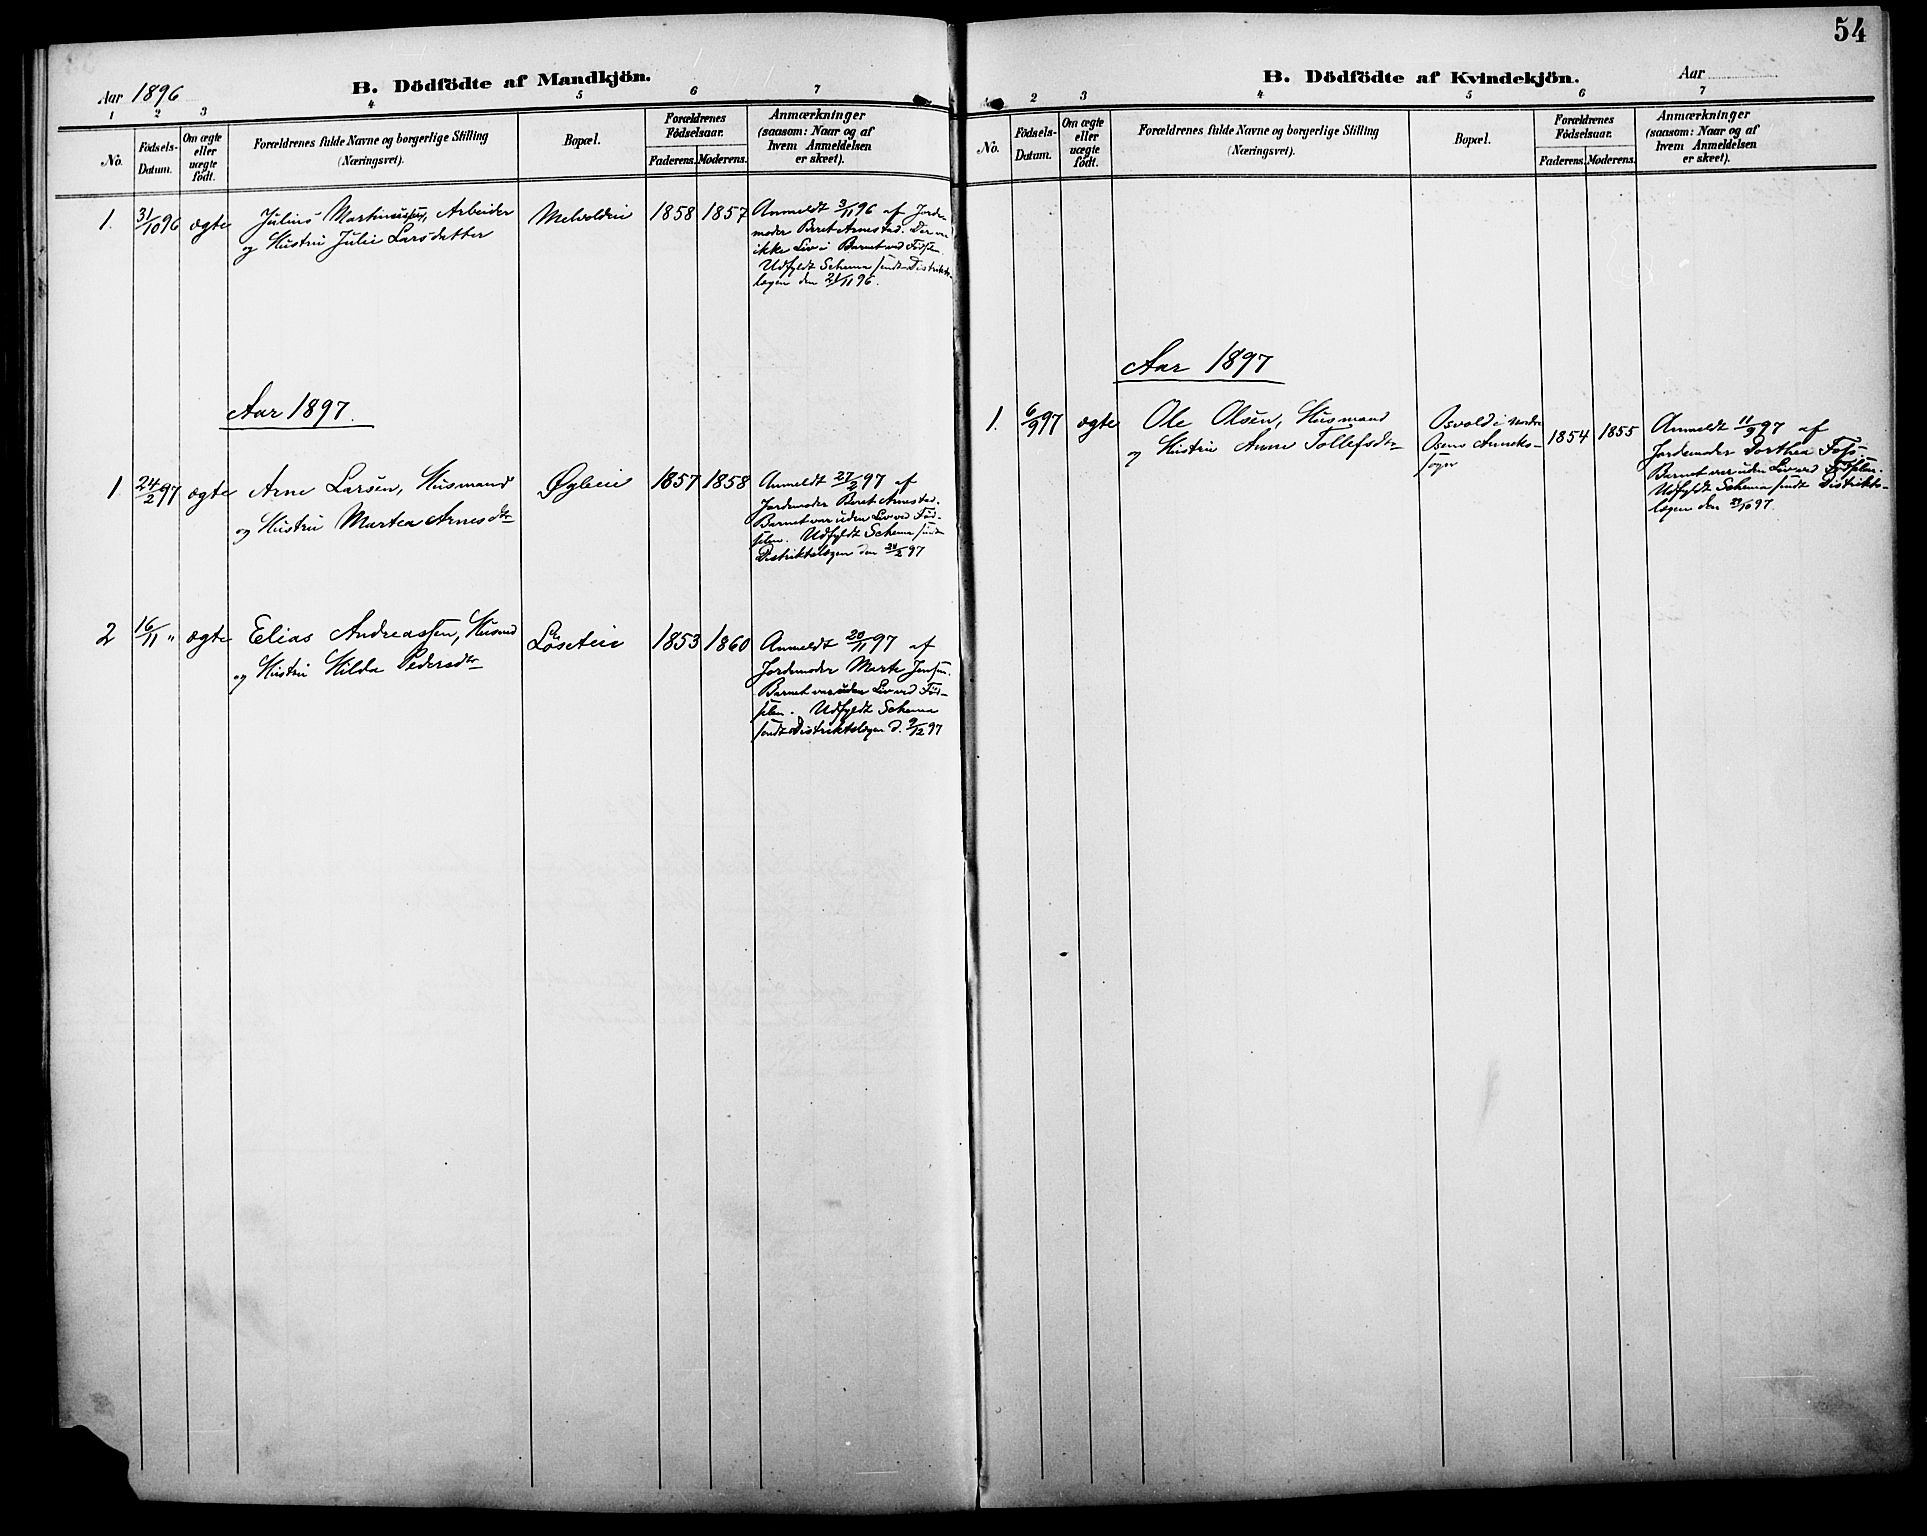 Aar 1896
B. Dödfödte af Mandkjön.
1 2 3 4 5 6 7
No.
Födsels-
Datum.
Om ægte
eller
uægte
födt.
Forældrenes fulde Navne og borgerlige Stilling
(Næringsvei).
Bopæl.
Forældrenes
Födselsaar.
Faderens. Moderens.
Anmærkninger
(saasom: Naar og af
hvem Anmeldelsen
er skeet).
1. 31/10 96 ægte
Julius Martinussen, Arbeider
og Hustru Julie Larsdatter
1858 1857
Anmeldt 3/11 96 af Jorde-
moder Beret Arnestad. Der var
ikke Liv i Barnet ved Fødslen.
Udfyldt Schema sendt Distrikts-
lægen den 21/11 96.
Aar 1897.
1 24/2 97 ægte
Arne Larsen, Husmand
og Hustru Martea Arnesdtr
1857 1858
Anmeldt 27/2 97 af
Jordemoder Beret Arnestad.
Barnet var uden Liv ved Fød-
slen. Udfyldt Schema sendt
Distriktslægen den 97
2 16/11 " ægte
Elias Andreassen, Husmd
og Hustru Hilda Pedersdtr
Løseteie
1853 1860
Anmeldt 20/11 97 af
Jordemoder Marte Jensen.
Barnet var uden Liv ved Fød-
slen. Udfyldt Schema
sendt Distriktslægen d. 9/12 97
54
B. Dödfödte af Kvindekjön.
Aar
2 3 4 5 6 7
No.
Födsels-
Datum.
Om ægte
eller
uægte
födt.
Forældrenes fulde Navne og borgerlige Stilling
(Næringsvei).
Bopæl.
Forældrenes
Födselsaar.
Faderens. Moderens.
Anmærkninger
(saasom: Naar og af
hvem Anmeldelsen
er skeet).
Aar 1897
1. 6/9 97 ægte
Ole Olsen, Husmand
og Hustru Anne Tollefsdtr
Osvold i nordre
Osens Anneks-
sogn
1854 1855
Anmeldt 11/9 97 af
Jordemoder Dorthea Foss.
Barnet var uden Liv ved Fødslen.
Udfyldt Schema sendt Distrikts-
lægen den 97.